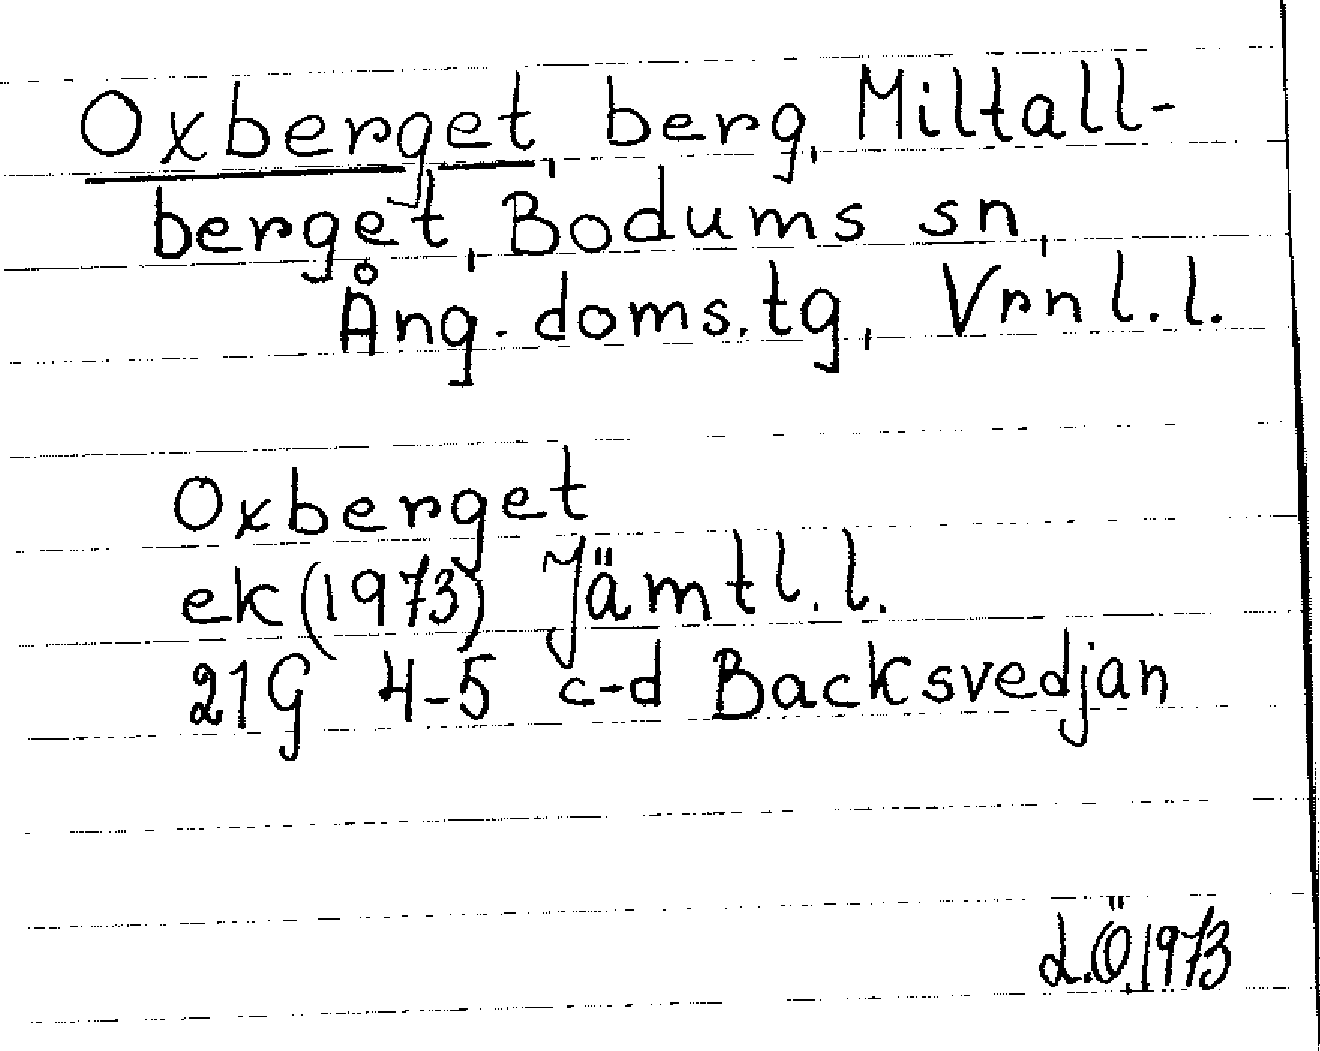 Oxberget, berg, Miltall-
berget, Bodums sn,
Ång. doms.tg, Vrnl.l.
Oxberget
ek (1973) Jämtl.l.
21G 4-5 c-d Backsvedjan
L.Ö.1973